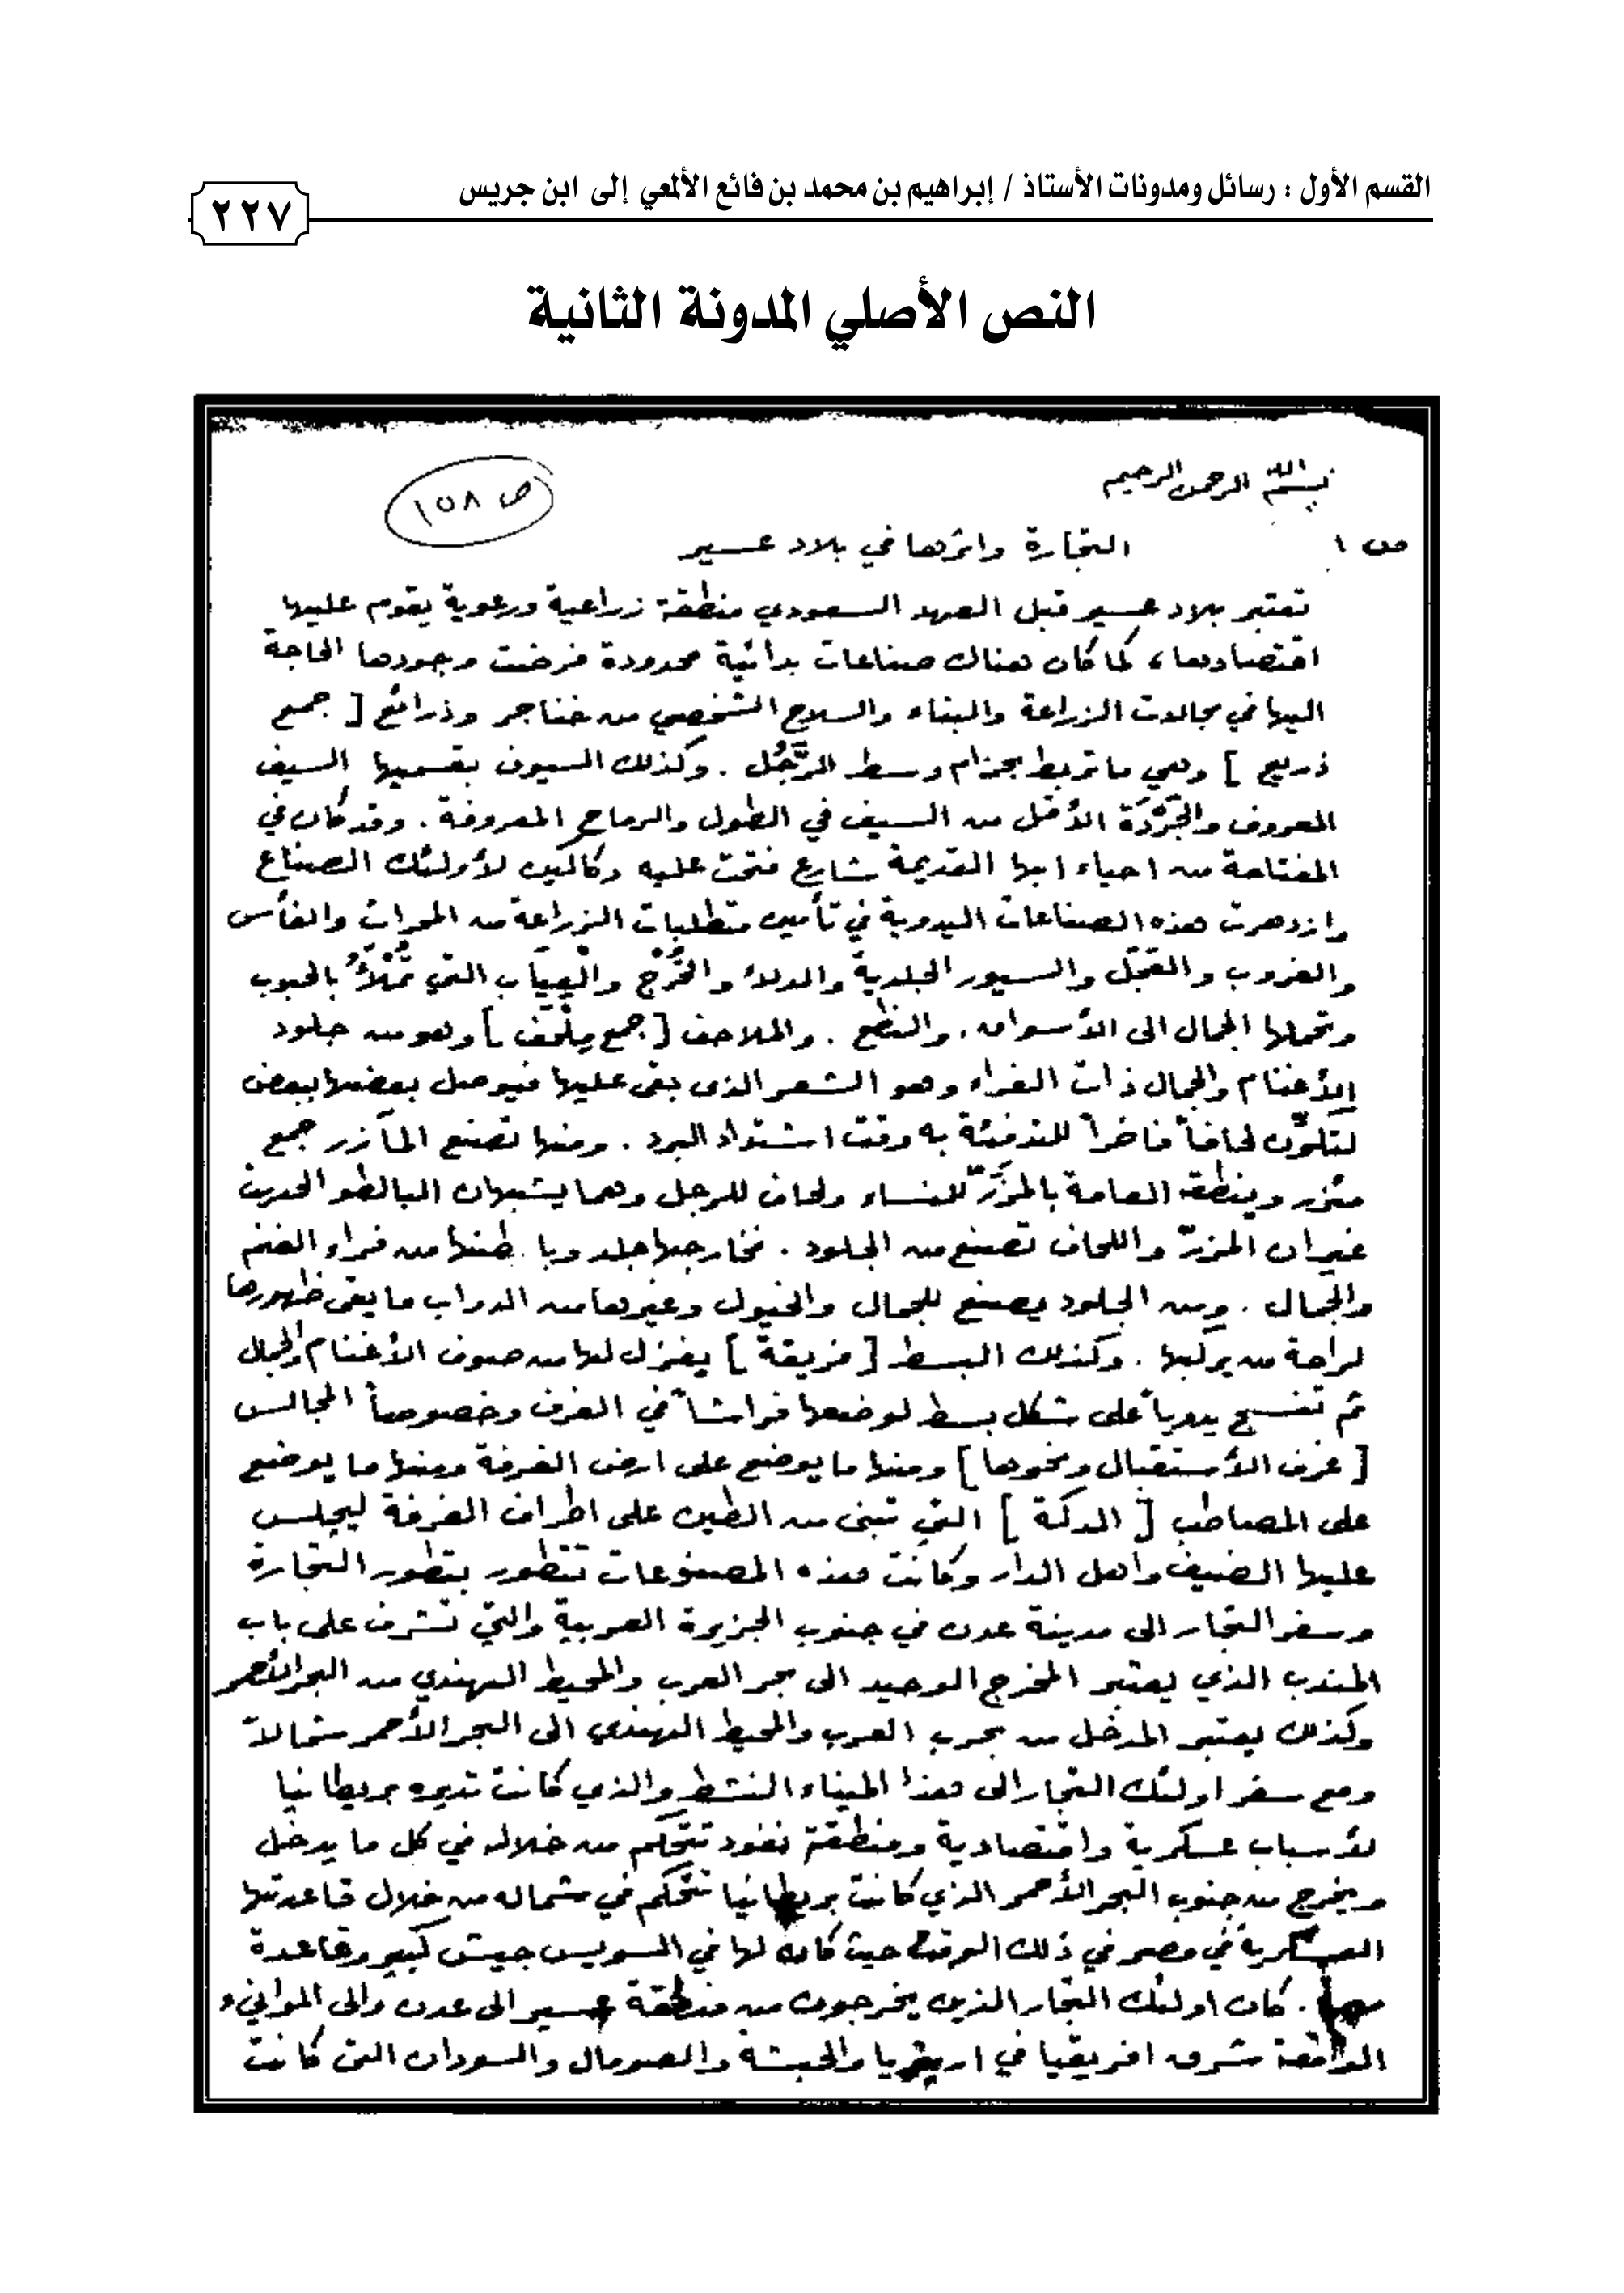 القسم الأول : رسائل ومدونات الأستاذ / إبراهيم بن محمد بن فائع الألمعي إلى ابن جريس
٢٢٧
النص الأصلي المدونة الثانية
بسم الله الرحمن الرحيم
ص ١٥٨
ص ١
التجارة واثرها في بلاد عسير
تعتبر بلاد عسير قبل العهد السعودي منطقة زراعية ورعوية يقوم عليها
اقتصادها، كما كان هناك صناعات بدائية محدودة فرضت وجودها الحاجة
اليها في مجالات الزراعة والبناء والسلاح الشخصي من خناجر وذرائع [ جمع
ذريع ] وهي ما تربط بحزام وسط الرَّجُل . وكذلك السيوف بقسميها السيف
المعروف والجَرْدَة الأقل من السيف في الطول والرماح المعروفة . وقد كان في
المفتاحة من احياء ابها القديمة شارع فتحت عليه دكاكين لأولئك الصناع
وازدهرت هذه الصناعات اليدوية في تأمين متطلبات الزراعة من المحراث والفأس
والغروب والعَجَل والسيور الجلدية والدلاء والخُرْج والْعِيَاب التي تُمْلَأُ بالحبوب
وتحملها الجمال الى الأسواق . والنطع . والملاحف [ جمع مِلْحَف ] وهو من جلود
الأغنام والجمال ذات الفراء وهو الشعر الذي بقى عليها فيوصل بعضها ببعض
لتكوّن لحافاً فاخراً للتدفئة به وقت اشتداد البرد . ومنها تصنع المآزر جمع
مئزر وينطقه العامة بالمَزَرّ للنساء ولحاف للرجل وهما يشبهان البالطو الحديث
غير ان المزرّ واللحاف تصنع من الجلود . فخارجها جلد وباطنها من فراء الغنم
والجمال . ومن الجلود يصنع للجمال والخيول وغيرها من الدواب ما يقى ظهورها
لراحة من يركبها . وكذلك البسط [ فريقة ] يغزل لها من صوف الأغنام والجمال
ثم تنسج يدوياً على شكل بسط لوضعها فراشاً في الغرف وخصوصاً المجالس
[ غرف الأستقبال ونحوها ] ومنها ما يوضع على ارض الغرفة ومنها ما يوضع
على المصاطب [ الدكة ] التي تبنى من الطين على اطراف الغرفة ليجلس
عليها الضيف واهل الدار وكانت هذه المصنوعات تتطور بتطور التجارة
وسفر التجار الى مدينة عدن في جنوب الجزيرة العربية والتي تشرف على باب
المندب الذي يعتبر المخرج الوحيد الى بحر العرب والمحيط الهندي من البحر الأحمر
وكذلك يعتبر المدخل من بحرب العرب والمحيط الهندي الى البحر الأحمر شمالاً
ومع سفر اولئك التجار الى هذا الميناء النشط والذي كانت تديره بريطانيا
لأسباب عسكرية واقتصادية ومنطقة نفوذ تتحكم من خلاله في كل ما يدخل
ويخرج من جنوب البحر الأحمر الذي كانت بريطانيا تتحكم في شماله من خلال قاعدتها
العسكرية في مصر في ذلك الوقت حيث كان لها في السويس جيش كبير وقاعدة
. كان اولئك التجار الذين يخرجون من منطقة عسير الى عدن والى الموانيء
الواقعة شرق افريقيا في اريتريا والحبشة والصومال والسودان التي كانت